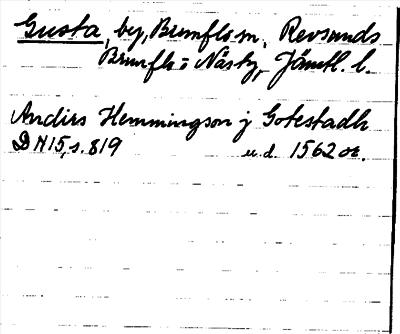 Gusta, by, Brunflo sn, Revsunds
Brunflo o Näsby, Jämtl. l.
Andirs Hemmingson j Gotestadh
DN 15, s. 819 u.d. 1562 or.